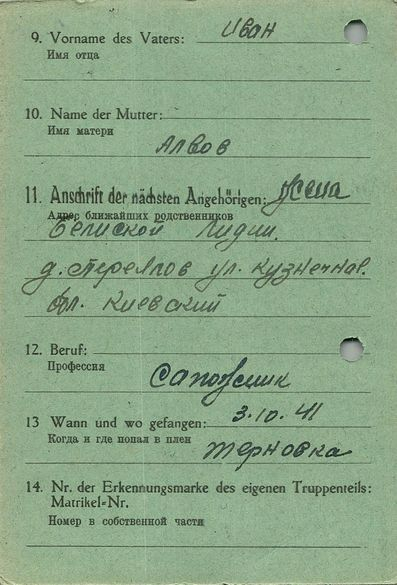 9. Vorname des Vaters: Иван
Имя отца
10. Name der Mutter:
Имя матери
Алвов
11. Anschrift der nächsten Angehörigen: Жена
Адрес ближайших родственников
Лидии.
ул. Кузнечная.
Киевский
12. Beruf:
Профессия
Сапожник
13 Wann und wo gefangen: 3.10.41
Когда и где попал в плен
Терновка
14. Nr. der Erkennungsmarke des eigenen Truppenteils:
Matrikel-Nr.
Номер в собственной части